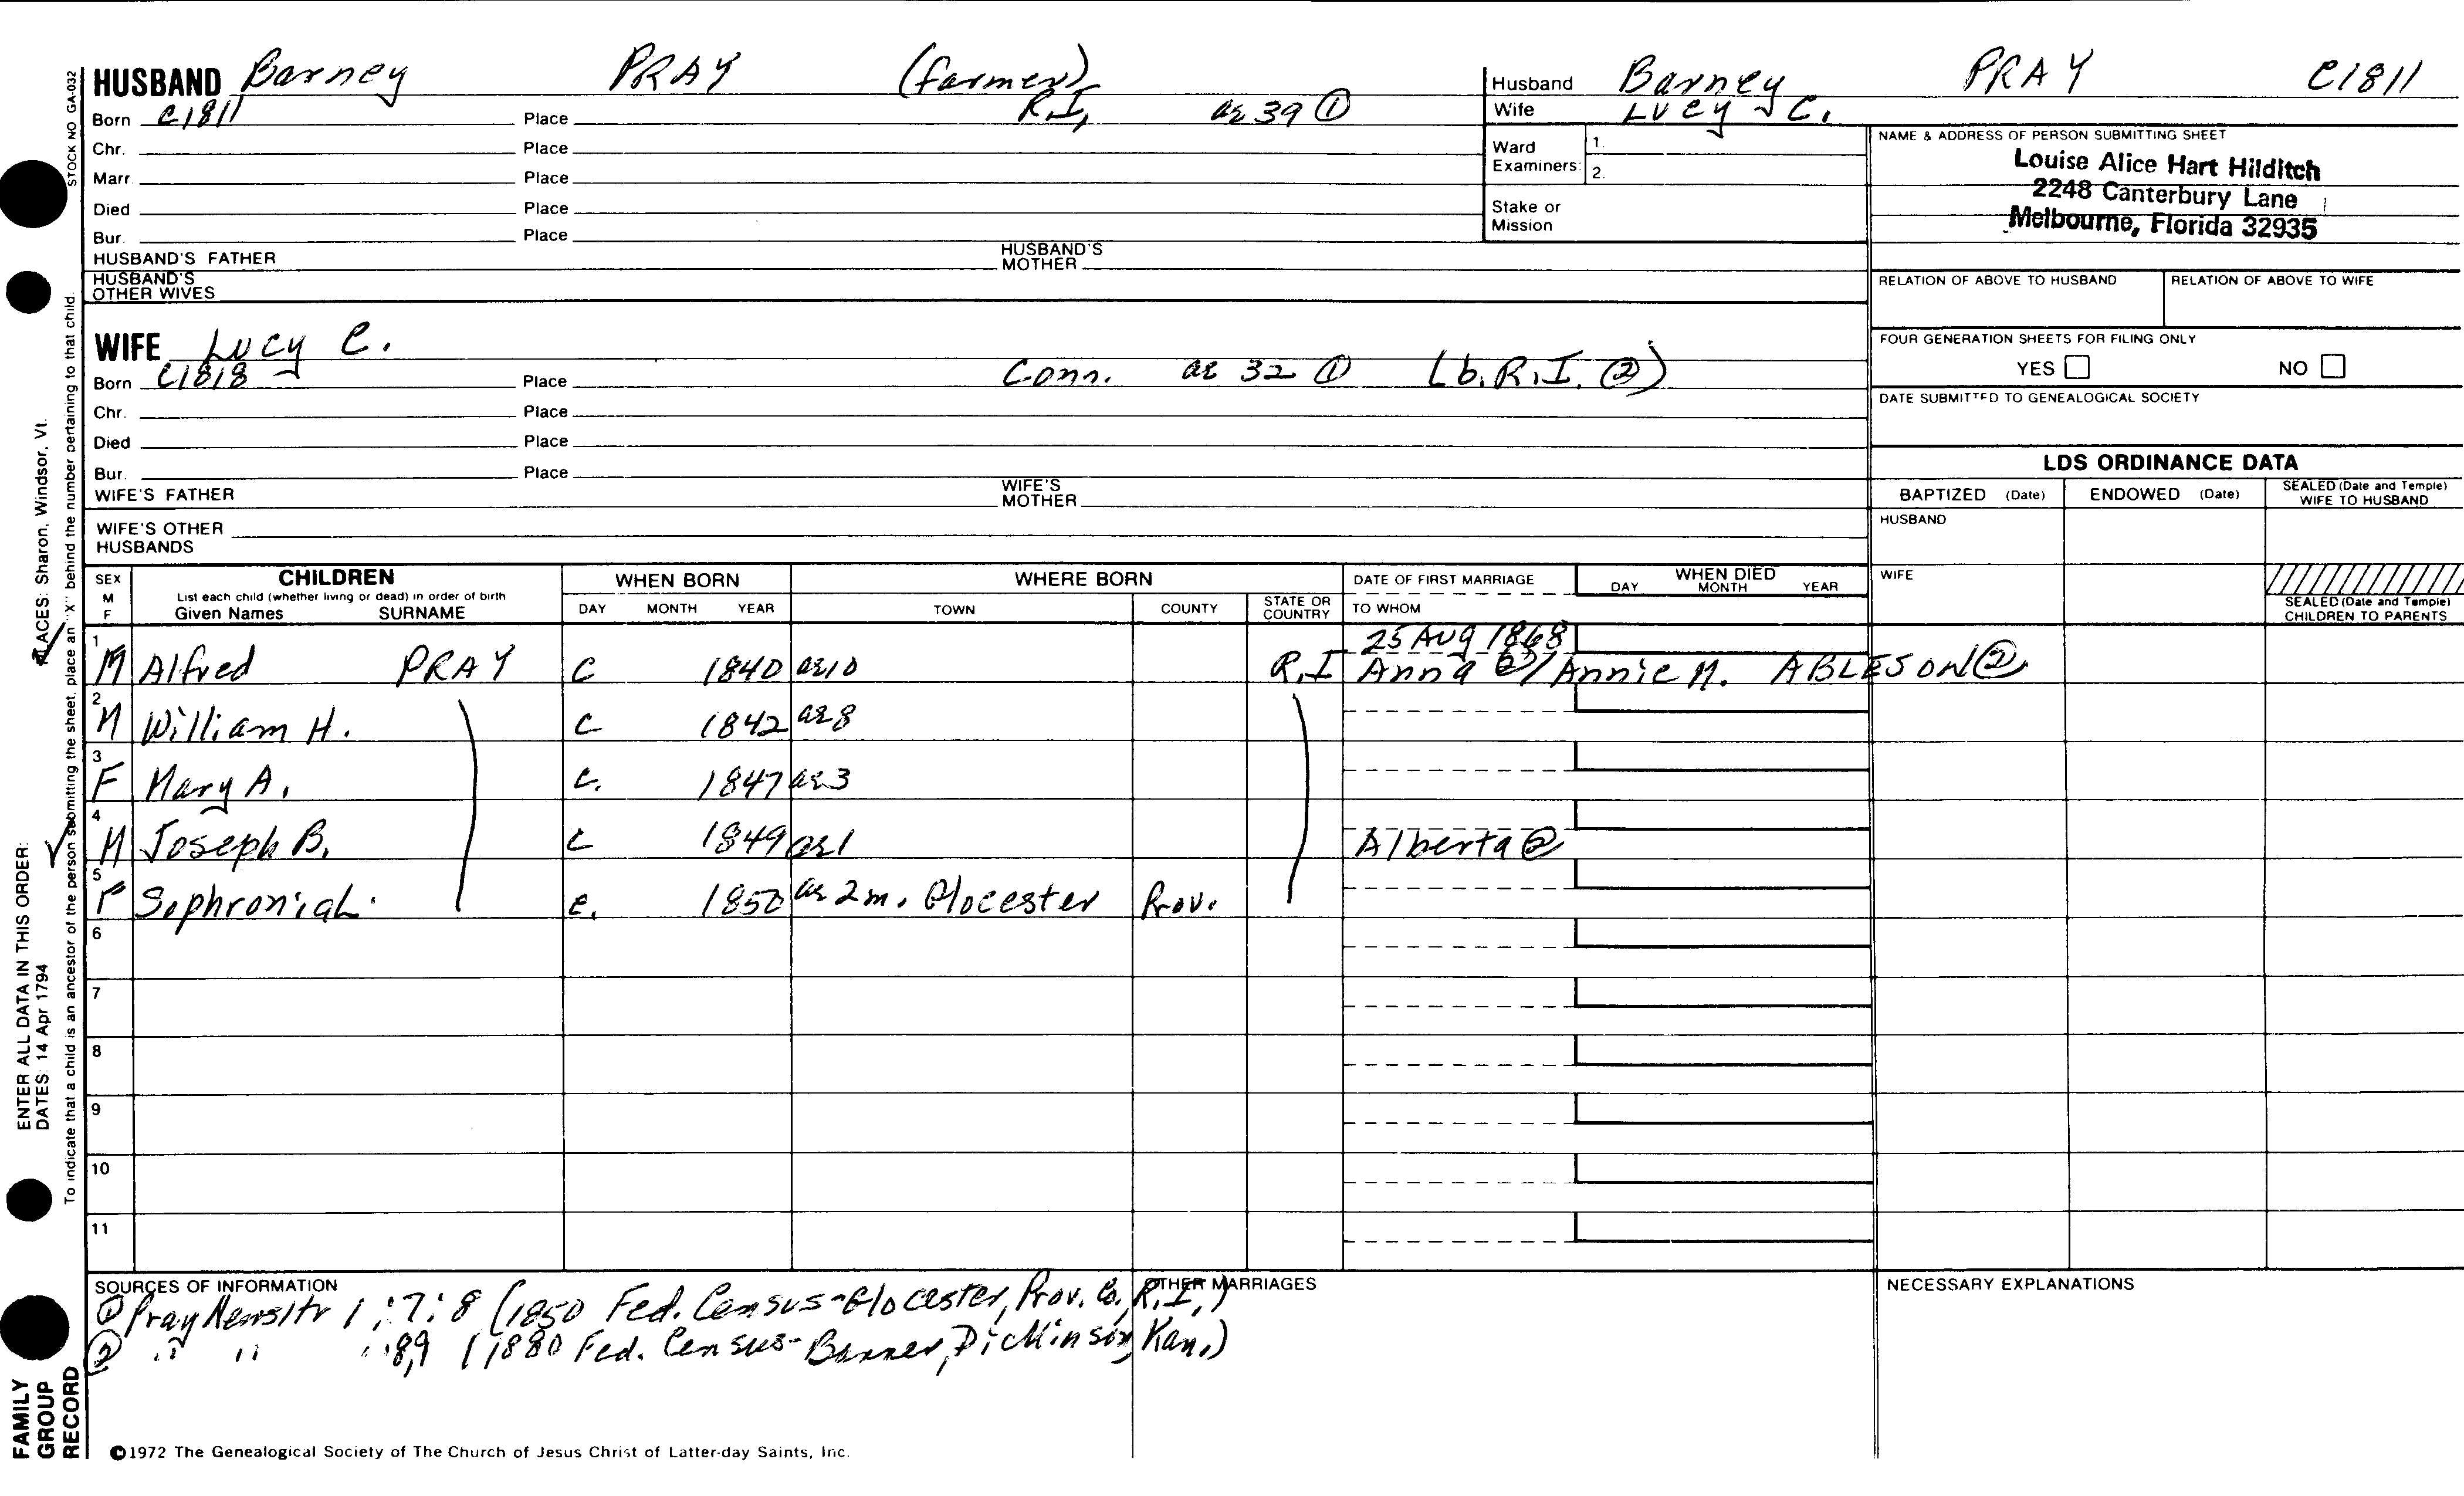 HUSBAND Barney PRAY (farmer)
Born C1811 Place R.I, ae 39 ①
Chr. Place
Marr. Place
Died Place
Bur. Place
HUSBAND'S FATHER HUSBAND'S MOTHER
HUSBAND'S OTHER WIVES
Husband Barney PRAY C1811
Wife Lucy C.
Ward Examiners: 1. 2.
Stake or Mission
NAME & ADDRESS OF PERSON SUBMITTING SHEET
Louise Alice Hart Hilditch
2248 Canterbury Lane
Melbourne, Florida 32935
RELATION OF ABOVE TO HUSBAND RELATION OF ABOVE TO WIFE
WIFE Lucy C.
Born C1818 Place Conn. ae 32 ① (b. R.I. ②)
Chr. Place
Died Place
Bur. Place
WIFE'S FATHER WIFE'S MOTHER
WIFE'S OTHER HUSBANDS
FOUR GENERATION SHEETS FOR FILING ONLY
YES NO
DATE SUBMITTED TO GENEALOGICAL SOCIETY
LDS ORDINANCE DATA
BAPTIZED (Date) ENDOWED (Date) SEALED (Date and Temple) WIFE TO HUSBAND
HUSBAND
WIFE
SEALED (Date and Temple) CHILDREN TO PARENTS
SEX M F CHILDREN WHEN BORN WHERE BORN DATE OF FIRST MARRIAGE WHEN DIED
List each child (whether living or dead) in order of birth
Given Names SURNAME DAY MONTH YEAR TOWN COUNTY STATE OR COUNTRY TO WHOM DAY MONTH YEAR
25 Aug 1868
1 M Alfred PRAY C 1840 ae 10 R.I Anna ②/Annie M. ABLESON ②
2 M William H. C 1842 ae 8
3 F Mary A. C. 1847 ae 3
4 M Joseph B. C 1849 ae 1 Alberta ②
5 F Sophronia L. C. 1850 ae 2 m. Glocester Prov.
6
7
8
9
10
11
SOURCES OF INFORMATION OTHER MARRIAGES NECESSARY EXPLANATIONS
① Pray Newsltr 1:7:8 (1850 Fed. Census-Glocester, Prov. Co. R.I.)
② " " " :8,9 (1880 Fed. Census-Banner, Dickinson, Kan.)
©1972 The Genealogical Society of The Church of Jesus Christ of Latter-day Saints, Inc.
STOCK NO GA-032
To indicate that a child is an ancestor of the person submitting the sheet, place an "X" behind the number pertaining to that child.
ENTER ALL DATA IN THIS ORDER: PLACES: Sharon, Windsor, Vt.
DATES: 14 Apr 1794
FAMILY GROUP RECORD